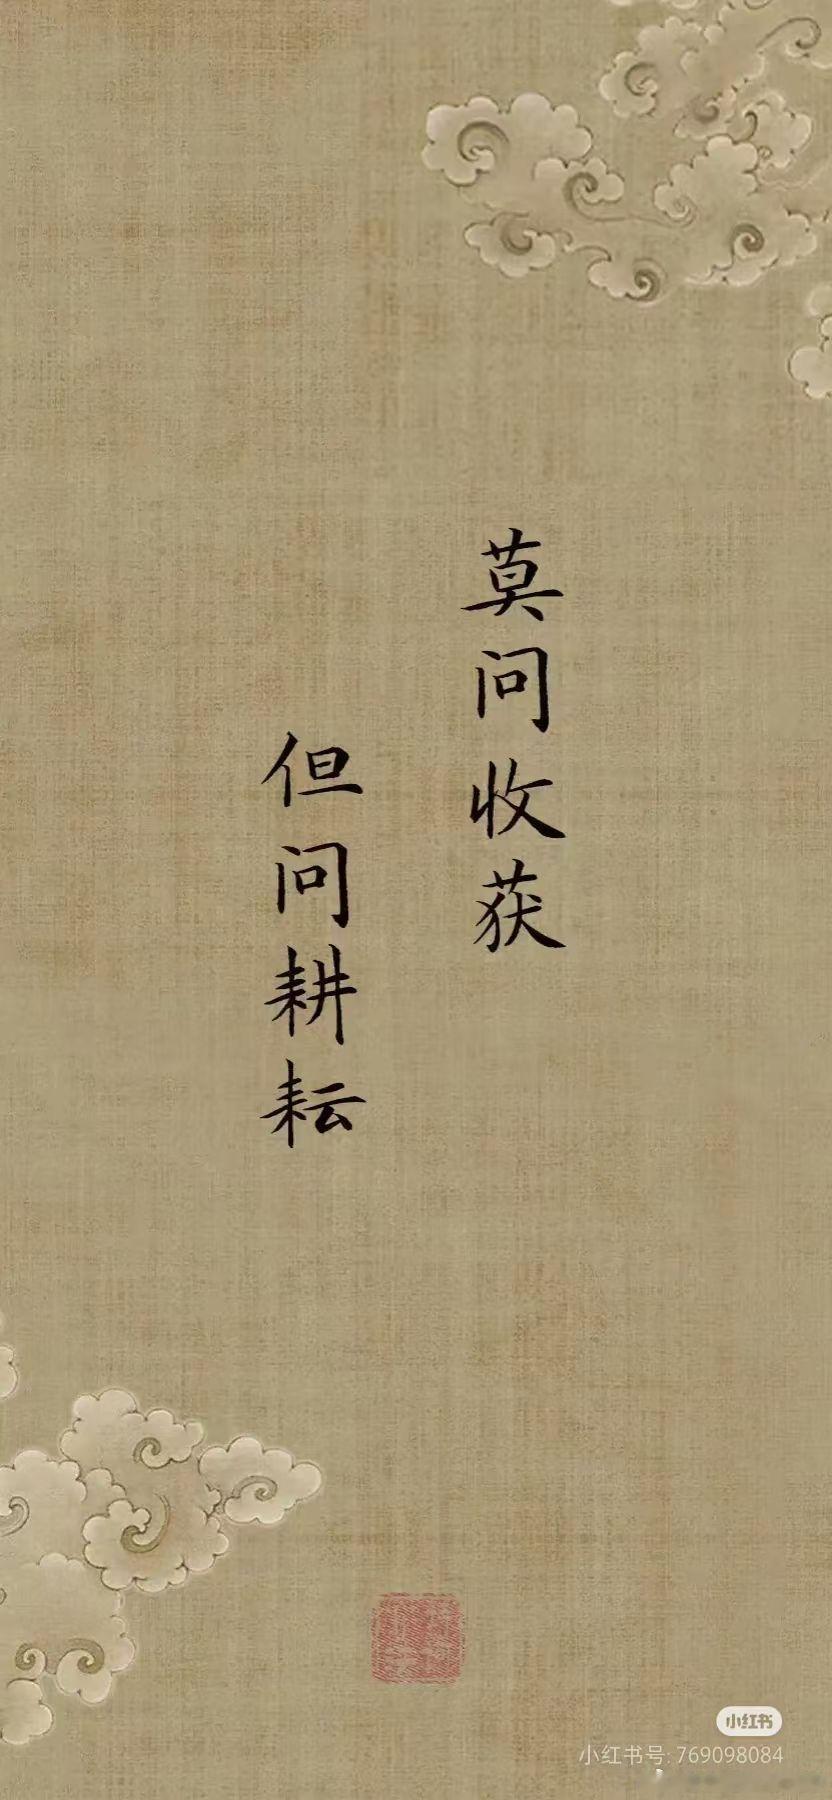 莫问收获
但问耕耘
小红书
小红书号: 769098084